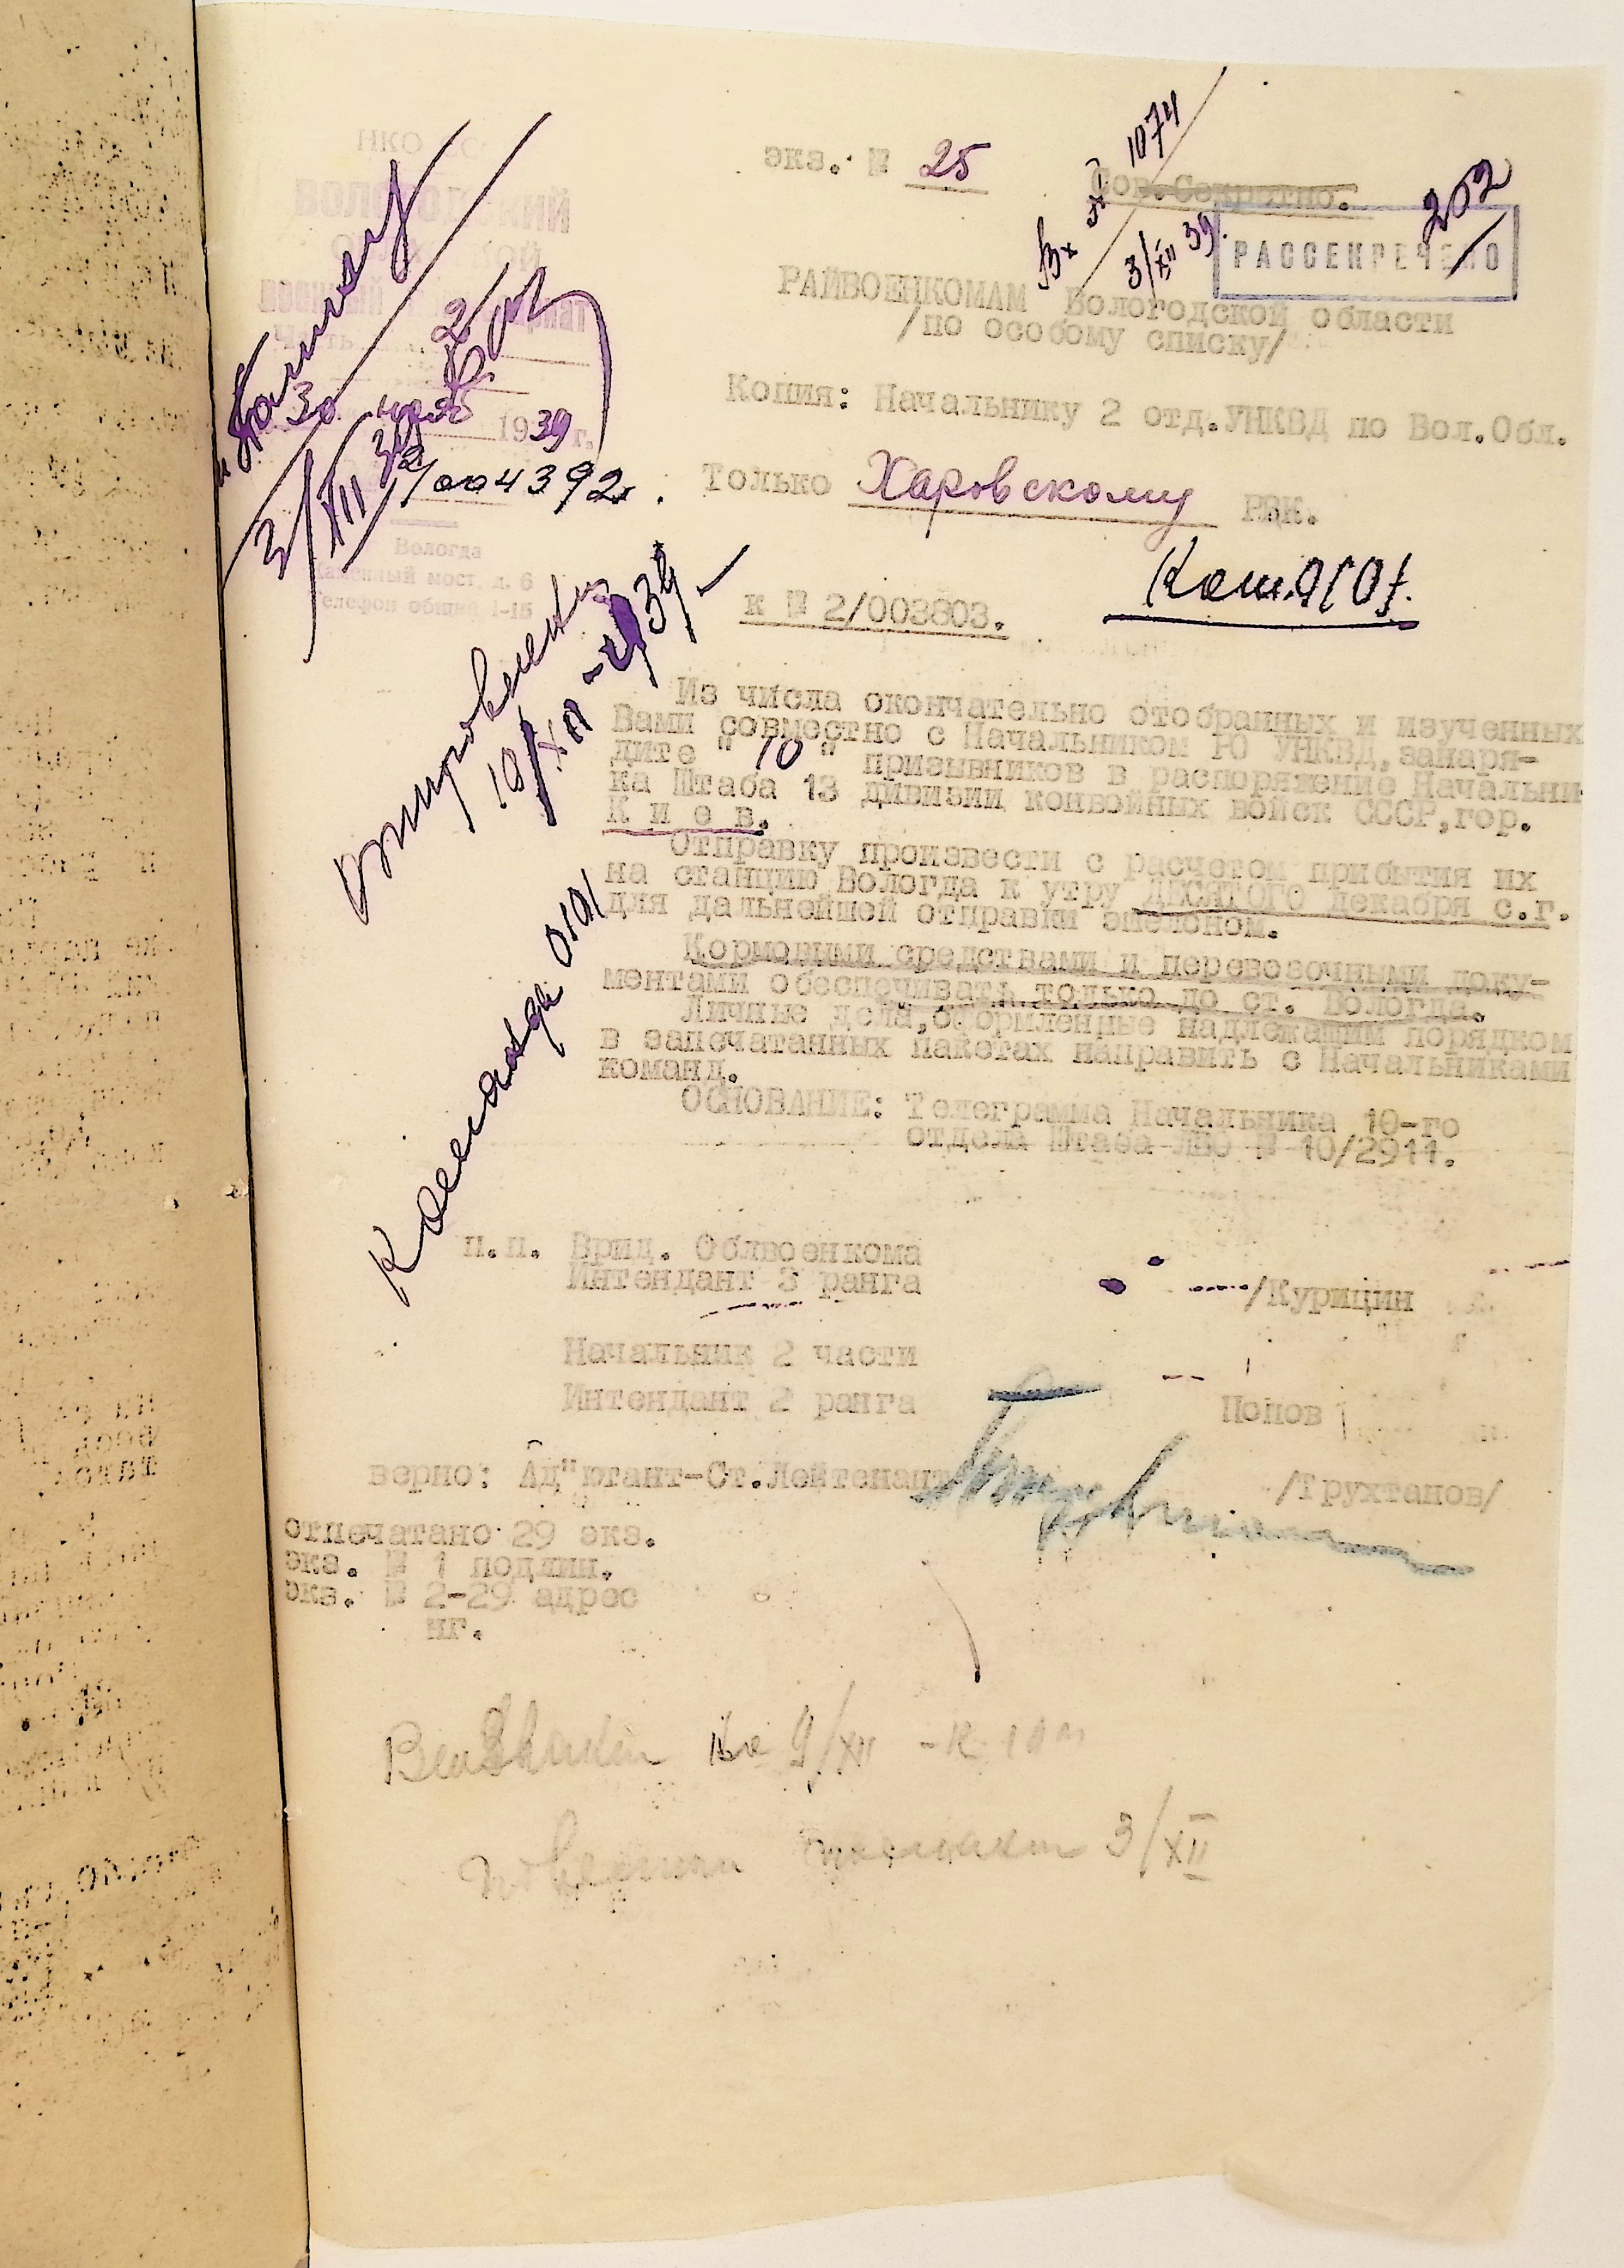 НКО
ВОЛОГОДСКИЙ
ОБЛАСТНОЙ
ВОЕННЫЙ
Часть 2
30
1939 г.
2/004392
Вологда
Каменный мост, д. 6
Телефон общий 1-15
3/XII 39
экз. № 25
Сов. Секретно.
Вх № 1074
3/XII 39.
202
РАССЕКРЕЧЕНО
РАЙВОЕНКОМАМ Вологодской области
/по особому списку/
Копия: Начальнику 2 отд.УНКВД по Вол.Обл.
Только Харовскому РВК.
Ком.0101.
к № 2/003803.
Из числа окончательно отобранных и изученных
Вами совместно с Начальником РО УНКВД, занаря-
дите " 10 " призывников в распоряжение Начальни
ка Штаба 13 дивизии конвойных войск СССР,гор.
К и е в.
Отправку произвести с расчетом прибытия их
на станцию Вологда к утру ДЕСЯТОГО декабря с.г.
для дальнейшей отправки эшелоном.
Кормовыми средствами и перевозочными доку-
ментами обеспечивать только до ст. Вологда.
Личные дела,оформленные надлежащим порядком
в запечатанных пакетах направить с Начальниками
команд.
ОСНОВАНИЕ: Телеграмма Начальника 10-го
отдела Штаба ЛВО № 10/2911.
Команда 0101
п.п. Врид. Облвоенкома
Интендант 3 ранга /Курицин
Начальник 2 части
Интендант 2 ранга Попов
верно: Ад"ютант-Ст.Лейтенант /Трухтанов/
отпечатано 29 экз.
экз. № 1 подлин.
экз. № 2-29 адрес
нг.
на 9/XII
3/XII